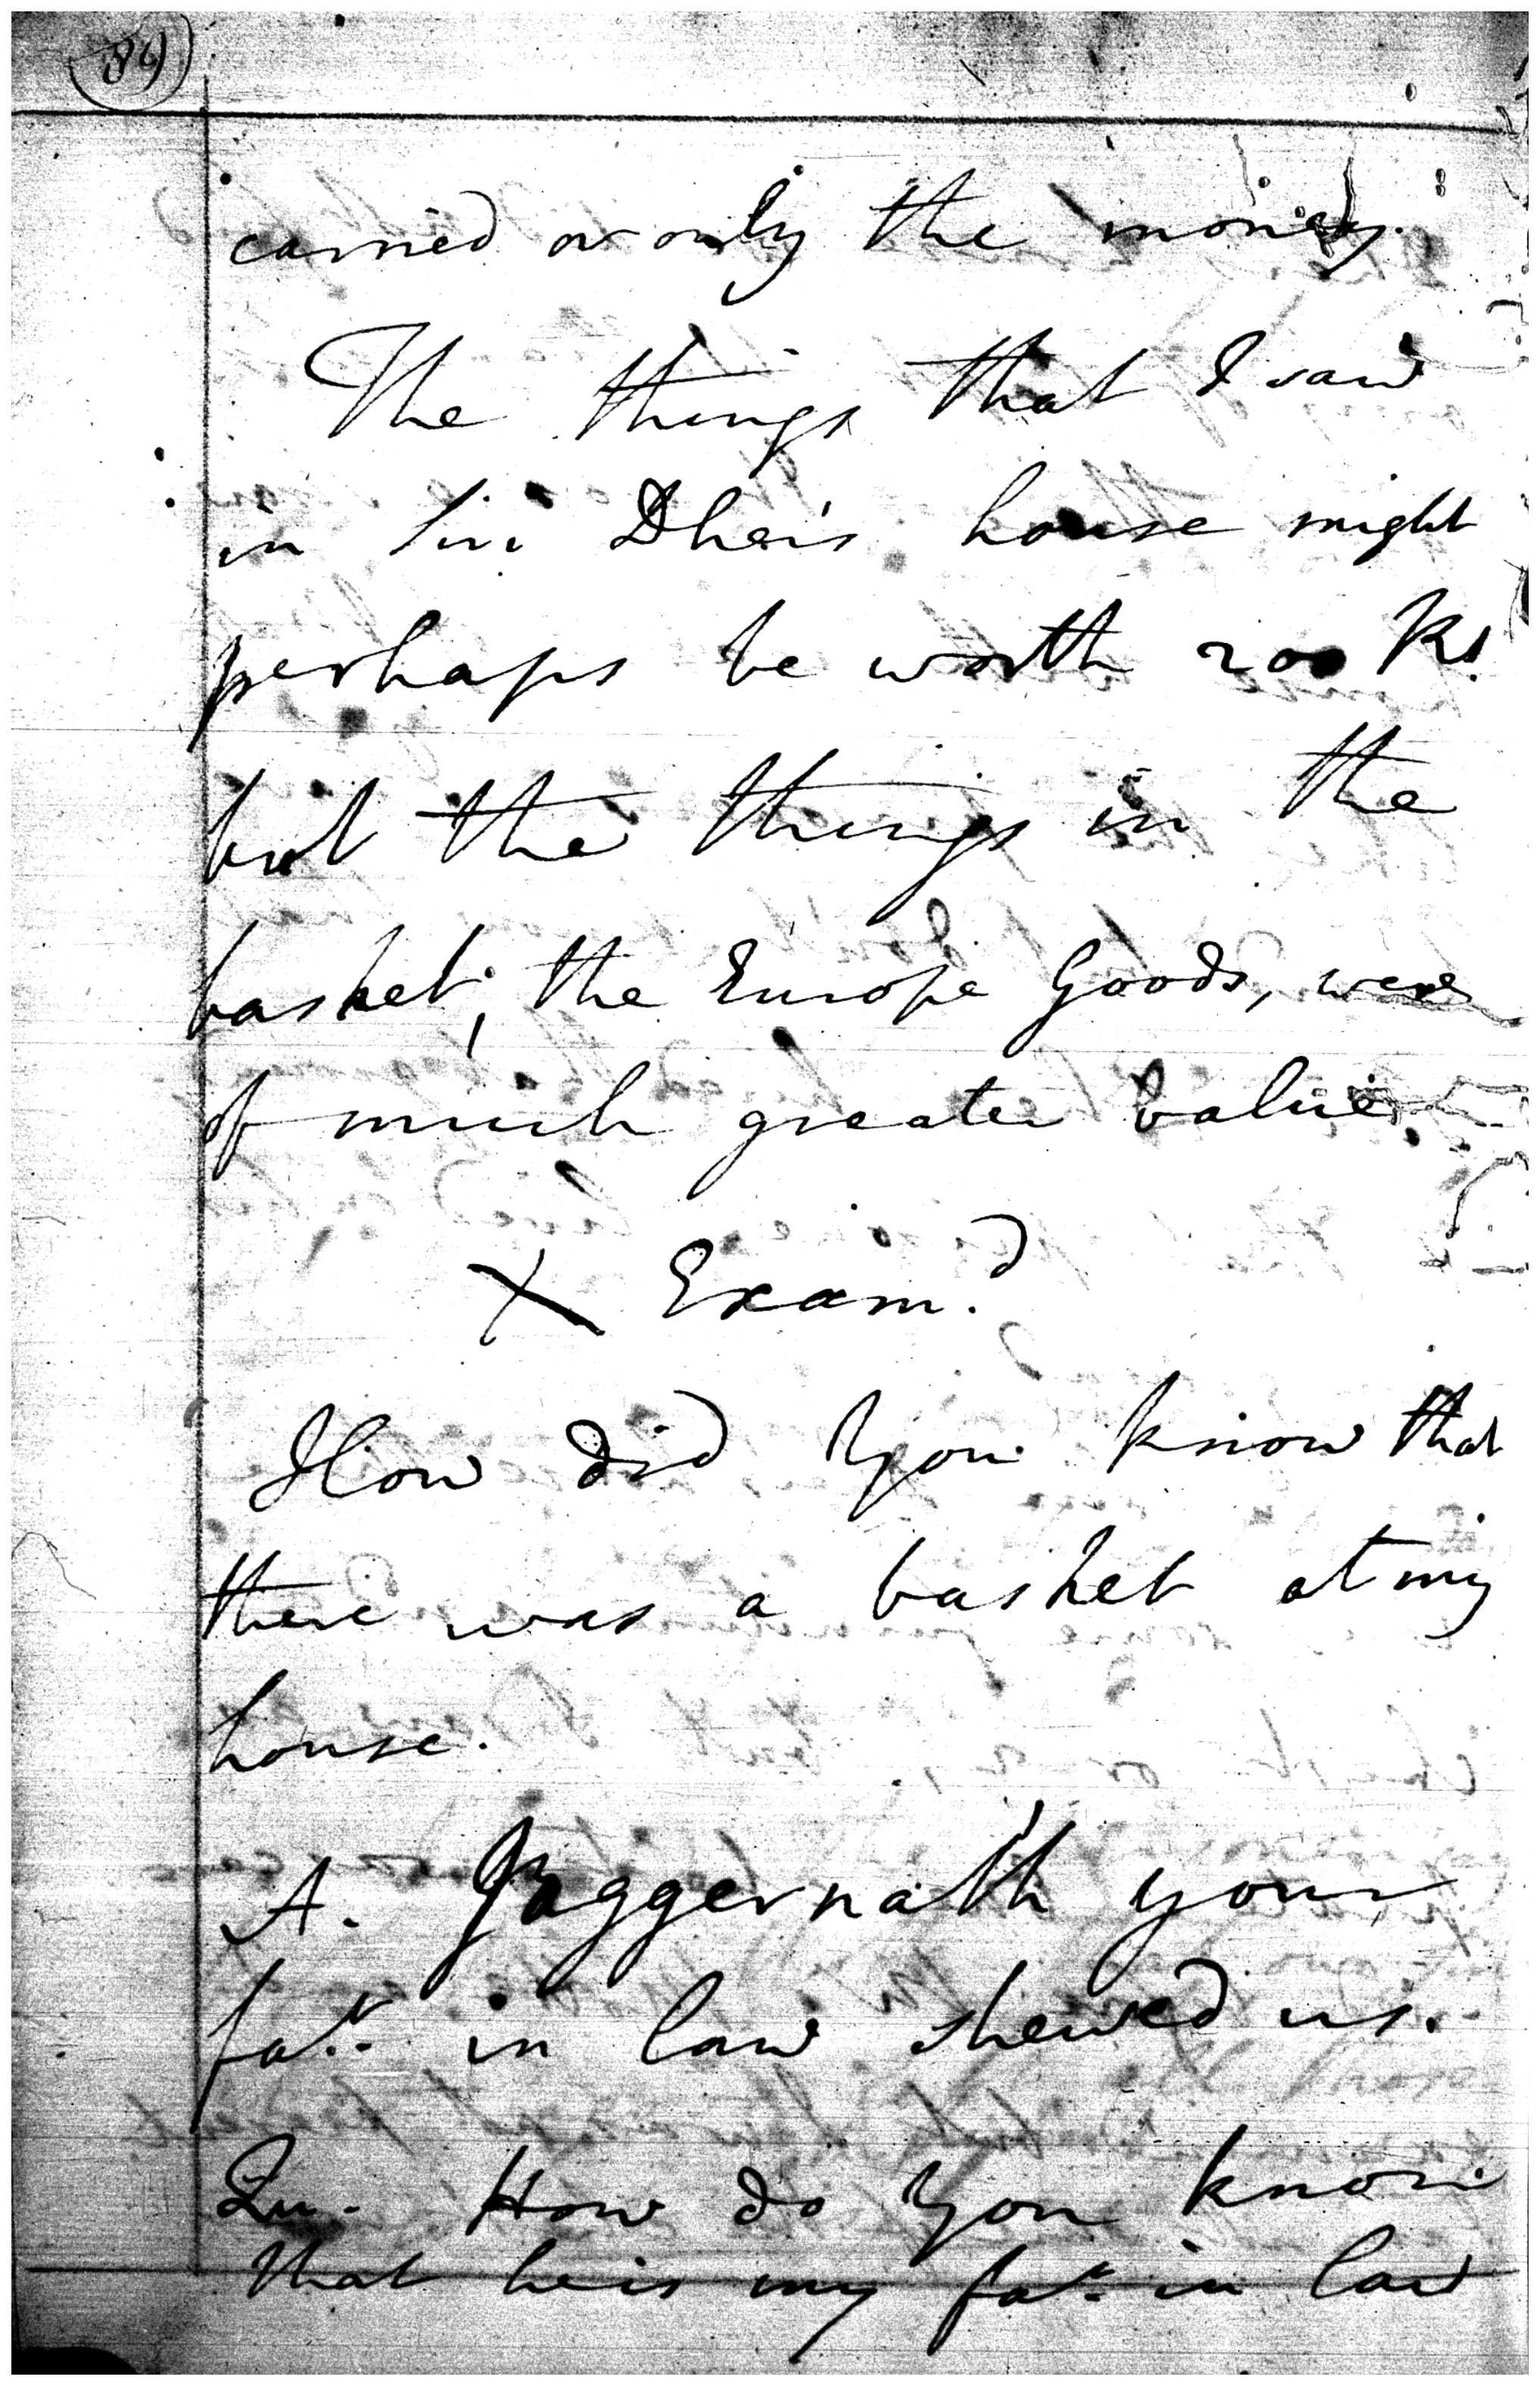 89
carried or only the money.
The things that I saw
in Siri Dher's house might
perhaps be worth 200 Rs.
but the things in the
basket, the Europe Goods, were
of much greater value.
X Exam.d
How did you know that
there was a basket at my
house.
A. Jaggernath your
fa.r in law shewed us.
Qu. How do you know
that he is my fa.r in law